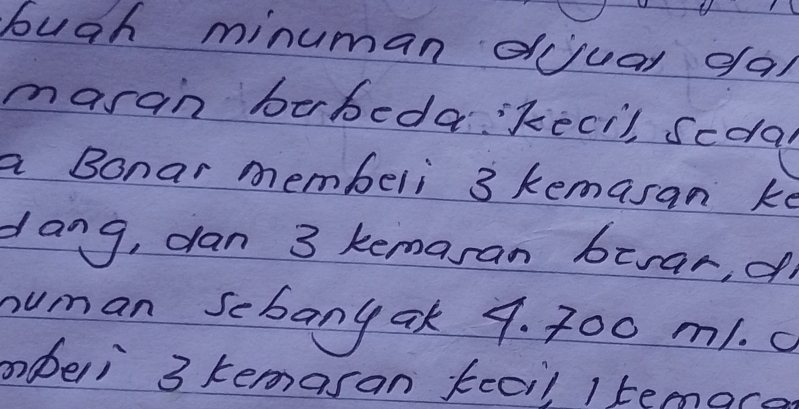 buah minuman dijual dal
masan berbeda: kecil, sedan
a Bonar membeli 3 kemasan ke
dang, dan 3 kemasan besar, di
numan sebanyak 4.700 ml. 
mbeli 3 kemasan kecil, 1 kemasa